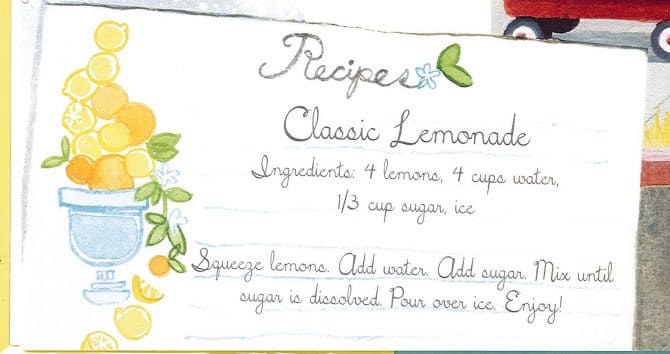 Recipes
Classic Lemonade
Ingredients: 4 lemons, 4 cups water,
1/3 cup sugar, ice
Squeeze lemons. Add water. Add sugar. Mix until
sugar is dissolved. Pour over ice. Enjoy!